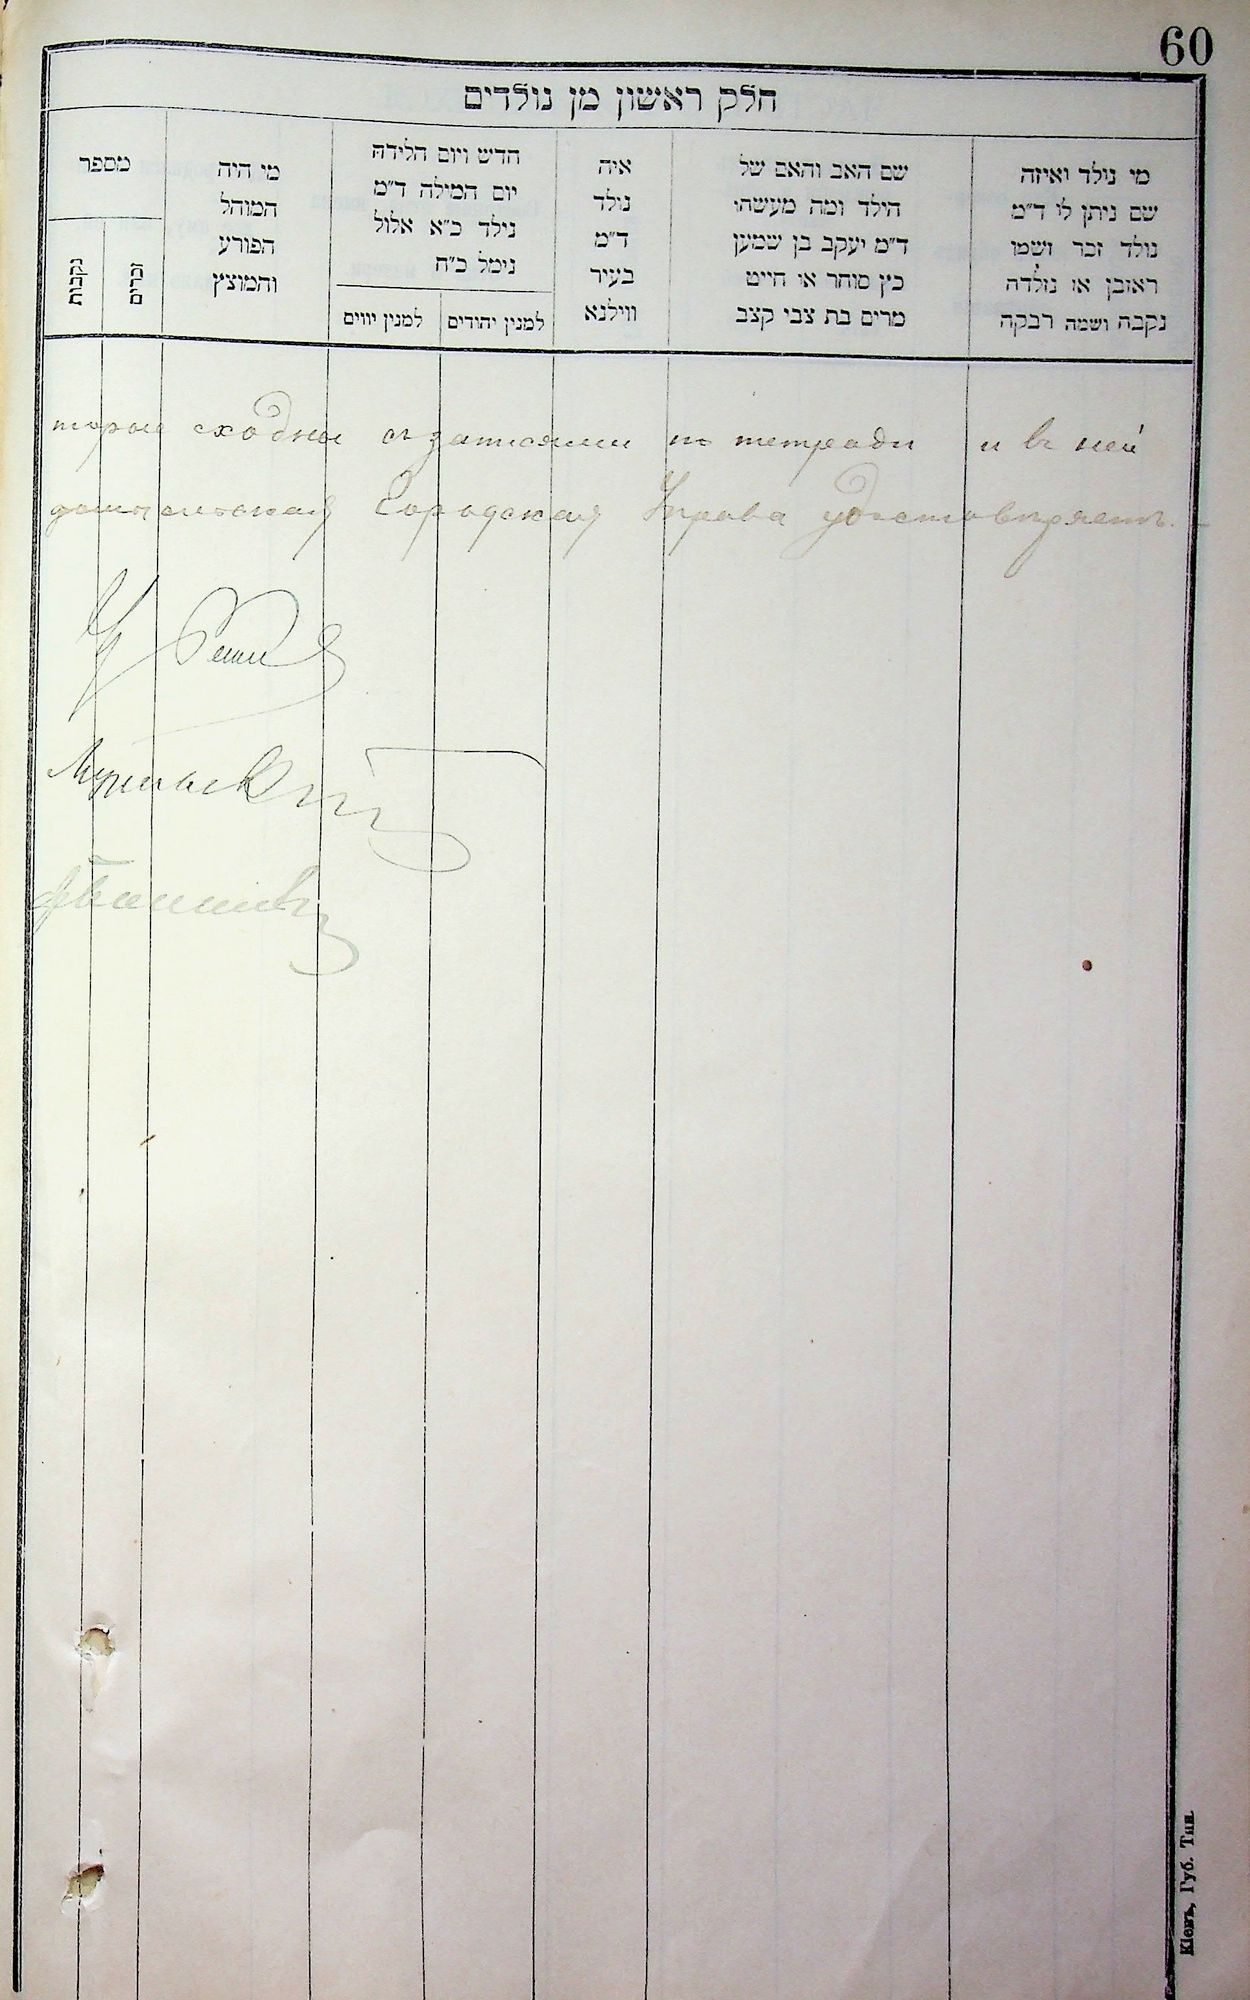 60
חלק ראשון מן נולדים
מי נולד ואיזה
שם ניתן לו ד״מ
נולד זכר ושמו
ראובן או נולדה
נקבה ושמה רבקה
שם האב והאם של
הילד ומה מעשהו
ד״מ יעקב בן שמעון
כץ סוחר או חייט
מרים בת צבי קצב
איה
נולד
ד״מ
בעיר
ווילנא
חדש ויום הלידה
יום המילה ד״מ
נילד כ״א אלול
נימל כ״ח
למנין יהודים
למנין יווים
מי היה
המוהל
הפורע
והמוצץ
מספר
זכרים
נקבות
торыя сходны съ записями по тетради и въ ней
Городская Управа удостовѣряетъ.
Кіевъ, Губ. Тип.